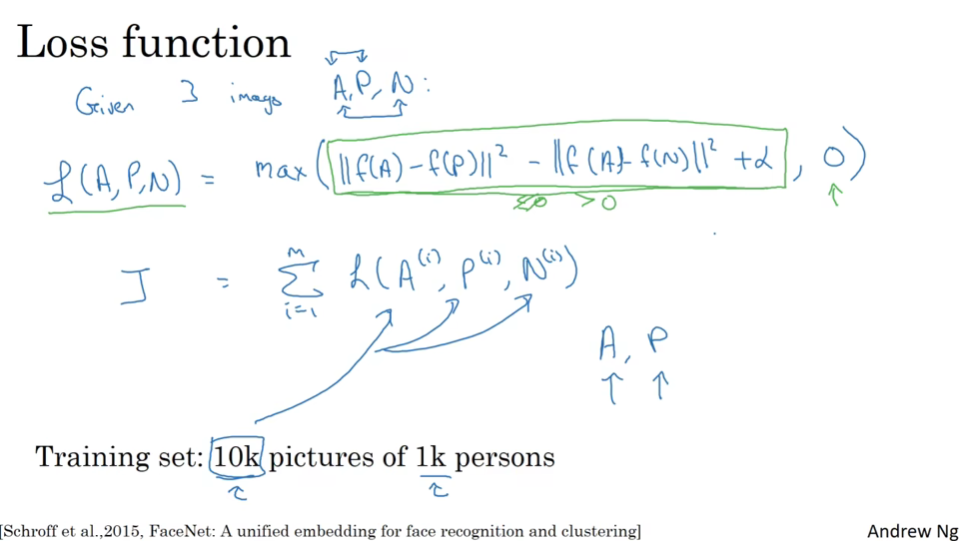 Loss function
Given 3 images A, P, N :
ℒ(A, P, N) = max( ||f(A) - f(P)||² - ||f(A) - f(N)||² + α , 0 )
≤0 >0
J = Σ_{i=1}^{m} ℒ(A⁽ⁱ⁾, P⁽ⁱ⁾, N⁽ⁱ⁾)
A, P
Training set: 10k pictures of 1k persons
[Schroff et al.,2015, FaceNet: A unified embedding for face recognition and clustering]
Andrew Ng